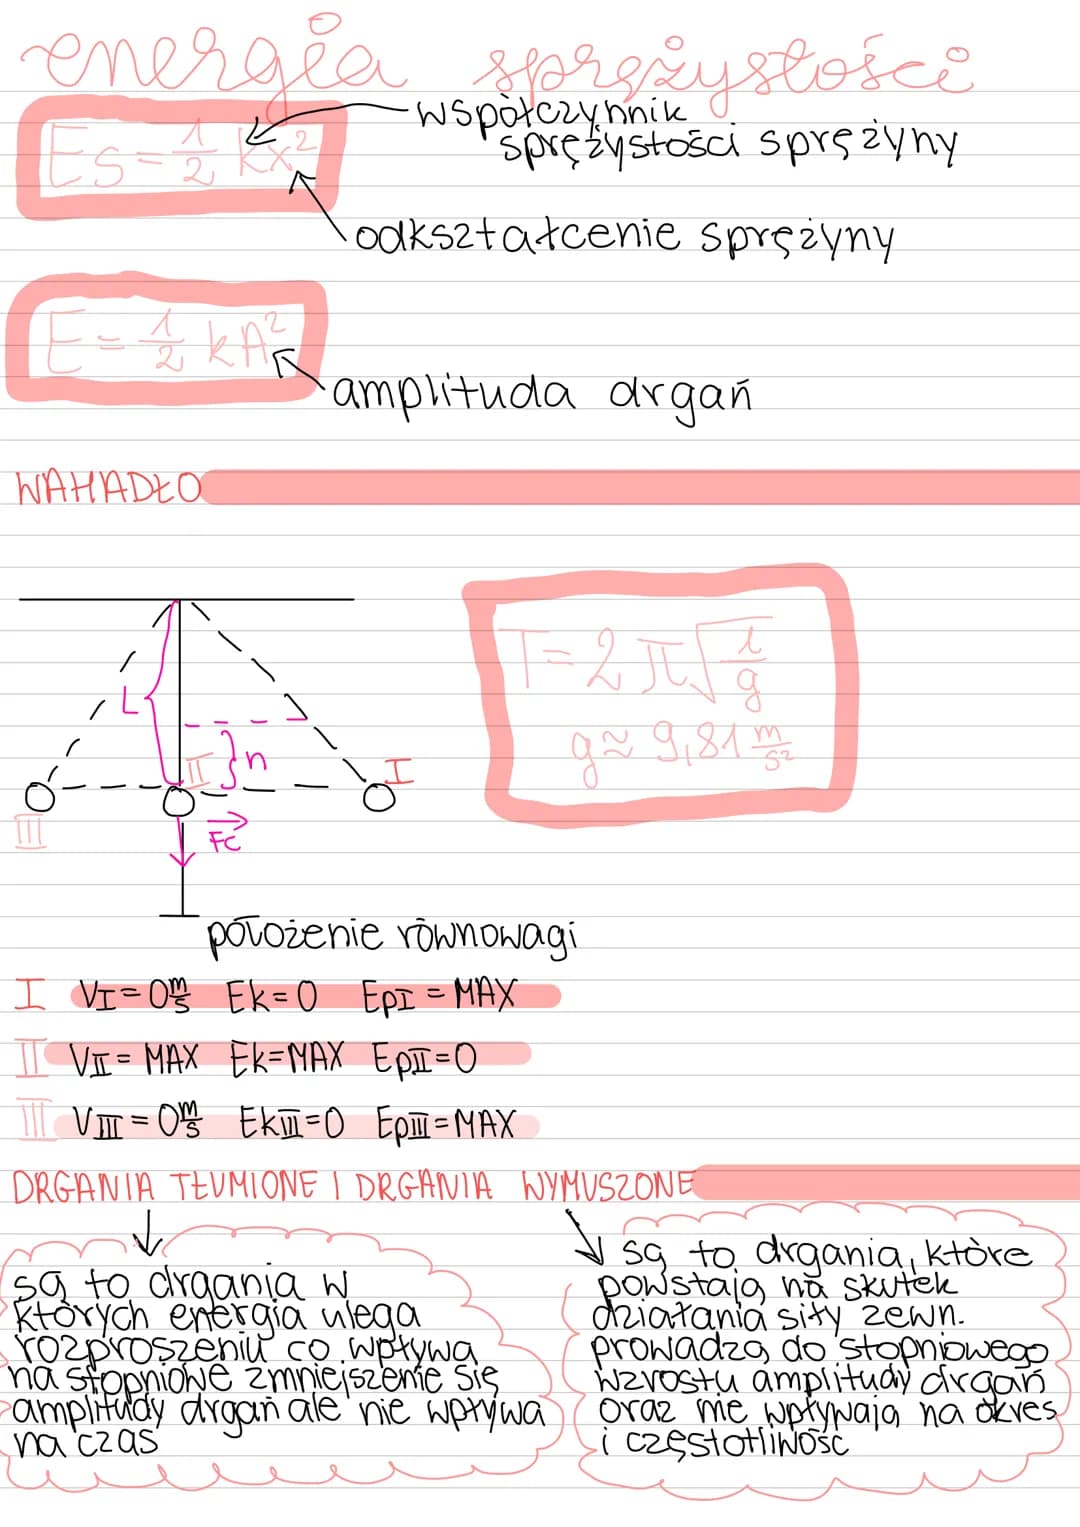 energia sprężystości
Es=½ kx²
współczynnik
sprężystości sprężyny
odkształcenie sprężyny
E=½ kA²
amplituda drgań
WAHADŁO
L
II
}n
I
III
Fc
T=2π√l/g
g≈9,81 m/s²
położenie równowagi
I VI=0 m/s Ek=0 EpI=MAX
II VII=MAX Ek=MAX EpII=0
III VIII=0 m/s EkIII=0 EpIII=MAX
DRGANIA TŁUMIONE I DRGANIA WYMUSZONE
są to drgania w
których energia ulega
rozproszeniu co wpływa
na stopniowe zmniejszenie się
amplitudy drgań ale nie wpływa
na czas
są to drgania, które
powstają na skutek
działania siły zewn.
prowadzą do stopniowego
wzrostu amplitudy drgań
oraz nie wpływają na okres
i częstotliwość